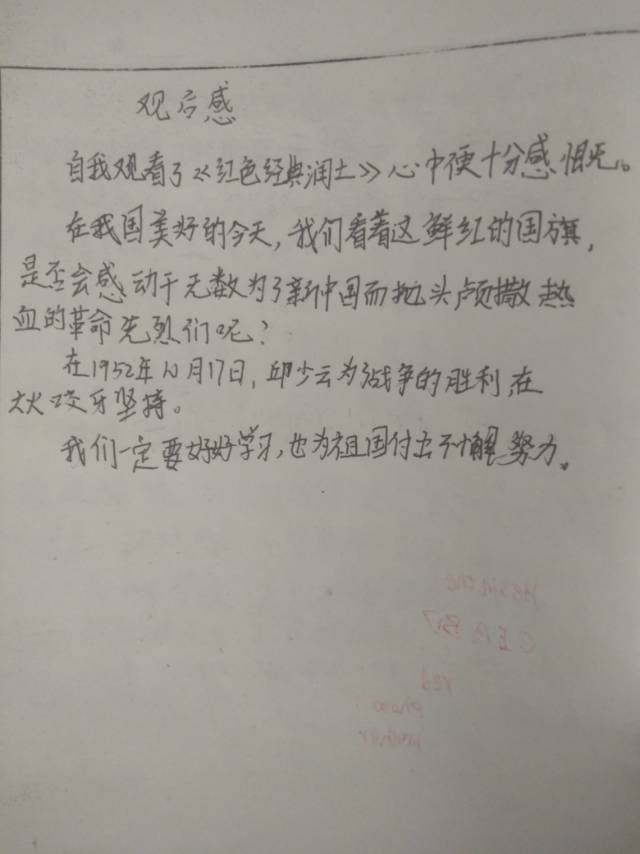 观后感
自我观看了《红色经典润土》心中便十分感慨。
在我国美好的今天，我们看着这鲜红的国旗，
是否会感动于无数为了新中国而抛头颅撒热
血的革命先烈们呢？
在1952年10月17日，邱少云为了战争的胜利，在
大火咬牙坚持。
我们一定要好好学习，也为祖国付出不懈努力。
red